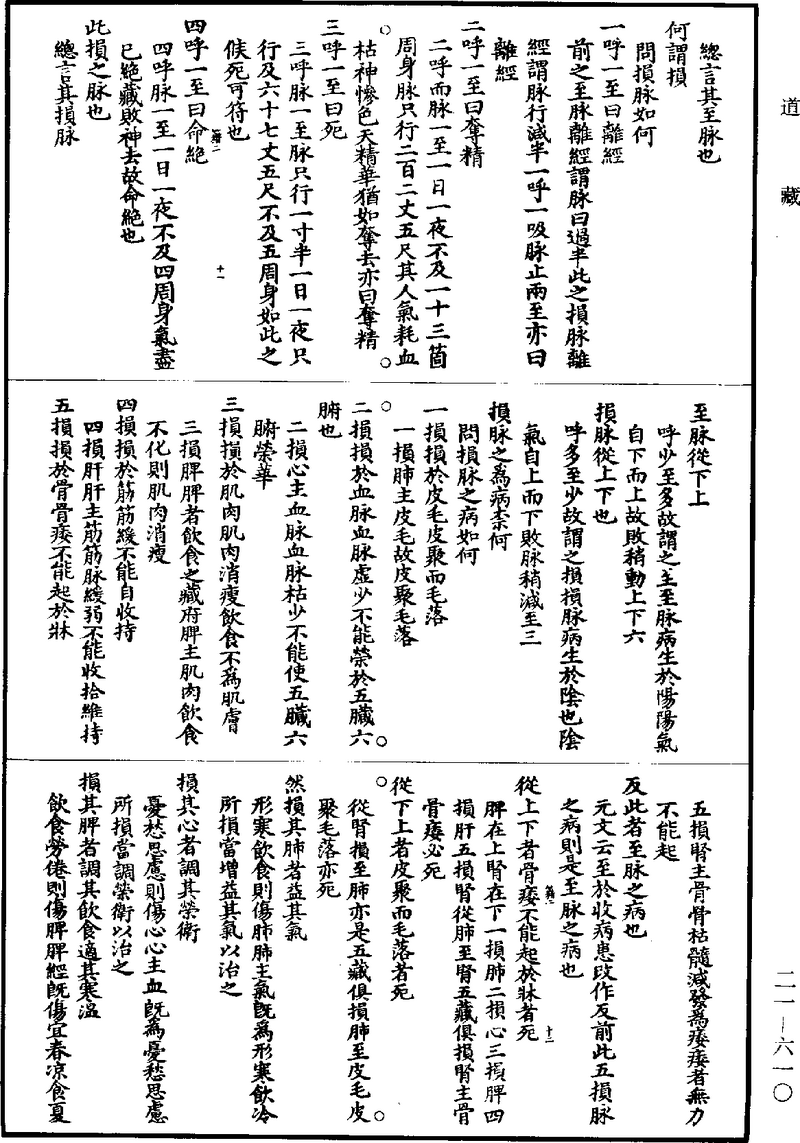 道藏
總言其至脉也
何謂損
問損脉如何
一呼一至曰離經
前之至脉離經謂脉曰過半此之損脉離
經謂脉行減半一呼一吸脉止兩至亦曰
離經
二呼一至曰奪精
二呼而脉一至一日一夜不及一十三箇
周身脉只行二百二丈五尺其人氣耗血
枯神慘色夭精華猶如奪去亦曰奪精
三呼一至曰死
三呼脉一至脉只行一寸半一日一夜只
行及六十七丈五尺不及五周身如此之
候死可符也
十一
四呼一至曰命絶
四呼脉一至一日一夜不及四周身氣盡
已絶藏敗神去故命絶也
此損之脉也
總言其損脉
至脉從下上
呼少至多故謂之至至脉病生於陽陽氣
自下而上故敗稍動上下六
損脉從上下也
呼多至少故謂之損損脉病生於陰也陰
氣自上而下敗脉稍減至三
損脉之爲病柰何
問損脉之病如何
一損損於皮毛皮聚而毛落
一損肺主皮毛故皮聚毛落
二損損於血脉血脉虛少不能榮於五臟六
腑也
二損心主血脉血脉枯少不能使五臟六
腑榮華
三損損於肌肉肌肉消瘦飲食不爲肌膚
三損脾脾者飲食之藏府脾主肌肉飲食
不化則肌肉消瘦
四損損於筋筋緩不能自收持
四損肝肝主筋筋脉緩弱不能收拾維持
五損損於骨骨痿不能起於牀
五損腎主骨骨枯髓減發爲痿痿者無力
不能起
反此者至脉之病也
元文云至於收病患改作反前此五損脉
之病則是至脉之病也
十二
從上下者骨痿不能起於牀者死
脾在上腎在下一損肺二損心三損脾四
損肝五損腎從肺至腎五藏俱損腎主骨
骨痿必死
從下上者皮聚而毛落者死
從腎損至肺亦是五藏俱損肺至皮毛皮
聚毛落亦死
然損其肺者益其氣
形寒飲食則傷肺肺主氣旣爲形寒飲冷
所損當增益其氣以治之
損其心者調其榮衛
憂愁思慮則傷心心主血旣爲憂愁思慮
所損當調榮衛以治之
損其脾者調其飲食適其寒溫
飲食勞倦則傷脾脾經旣傷宜春凉食夏
二一—六一〇